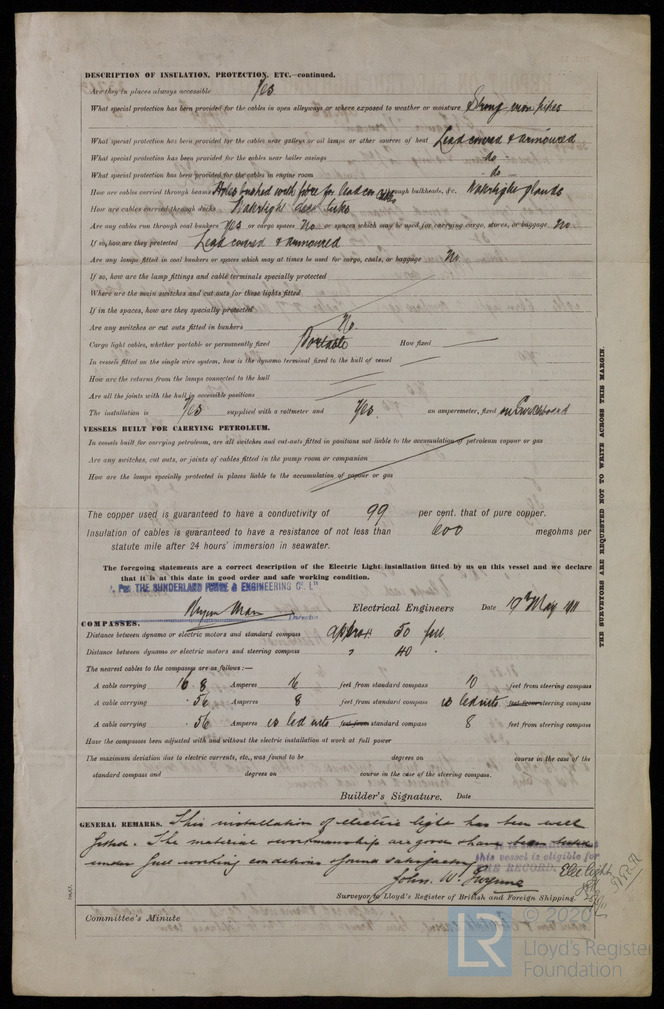 DESCRIPTION OF INSULATION, PROTECTION, ETC.—continued.
Are they in places always accessible Yes
What special protection has been provided for the cables in open alleyways or where exposed to weather or moisture Strong iron pipes
What special protection has been provided for the cables near galleys or oil lamps or other sources of heat Lead covered & armoured
What special protection has been provided for the cables near boiler casings do
What special protection has been provided for the cables in engine room do
How are cables carried through beams Holes bushed with fibre for lead cov cables through bulkheads, &c. Watertight glands
How are cables carried through decks Watertight deck tubes
Are any cables run through coal bunkers Yes or cargo spaces No or spaces which may be used for carrying cargo, stores, or baggage No
If so, how are they protected Lead covered & armoured
Are any lamps fitted in coal bunkers or spaces which may at times be used for cargo, coals, or baggage No
If so, how are the lamp fittings and cable terminals specially protected
Where are the main switches and cut outs for these lights fitted
If in the spaces, how are they specially protected
Are any switches or cut outs fitted in bunkers No
Cargo light cables, whether portable or permanently fixed Portable How fixed
In vessels fitted on the single wire system, how is the dynamo terminal fixed to the hull of vessel
How are the returns from the lamps connected to the hull
Are all the joints with the hull in accessible positions
The installation is Yes supplied with a voltmeter and Yes. an amperemeter, fixed on Switchboard
VESSELS BUILT FOR CARRYING PETROLEUM.
In vessels built for carrying petroleum, are all switches and cut-outs fitted in positions not liable to the accumulation of petroleum vapour or gas
Are any switches, cut outs, or joints of cables fitted in the pump room or companion
How are the lamps specially protected in places liable to the accumulation of vapour or gas
The copper used is guaranteed to have a conductivity of 99 per cent. that of pure copper.
Insulation of cables is guaranteed to have a resistance of not less than 600 megohms per
statute mile after 24 hours' immersion in seawater.
The foregoing statements are a correct description of the Electric Light installation fitted by us on this vessel and we declare
that it is at this date in good order and safe working condition.
Per THE SUNDERLAND FORGE & ENGINEERING Co. Ld
Director
Electrical Engineers Date 19th May 1911
COMPASSES.
Distance between dynamo or electric motors and standard compass approx. 50 feet
Distance between dynamo or electric motors and steering compass " 40 "
The nearest cables to the compasses are as follows:—
A cable carrying 16.8 Amperes 16 feet from standard compass 10 feet from steering compass
A cable carrying .56 Amperes 8 feet from standard compass is led into feet from steering compass
A cable carrying .56 Amperes is led into feet from standard compass 8 feet from steering compass
Have the compasses been adjusted with and without the electric installation at work at full power
The maximum deviation due to electric currents, etc., was found to be degrees on course in the case of the
standard compass and degrees on course in the case of the steering compass.
Builder's Signature. Date
GENERAL REMARKS. This installation of electric light has been well
fitted. The material & workmanship are good & have been tested
under full working conditions & found satisfactory
this vessel is eligible for
THE RECORD. Elec light
John. W.
Surveyor to Lloyd's Register of British and Foreign Shipping.
Committee's Minute
THE SURVEYORS ARE REQUESTED NOT TO WRITE ACROSS THIS MARGIN.
LR
© 2020
Lloyd's Register
Foundation